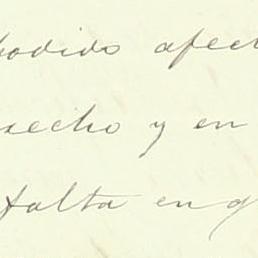 podido afect
recho y en
falta en g